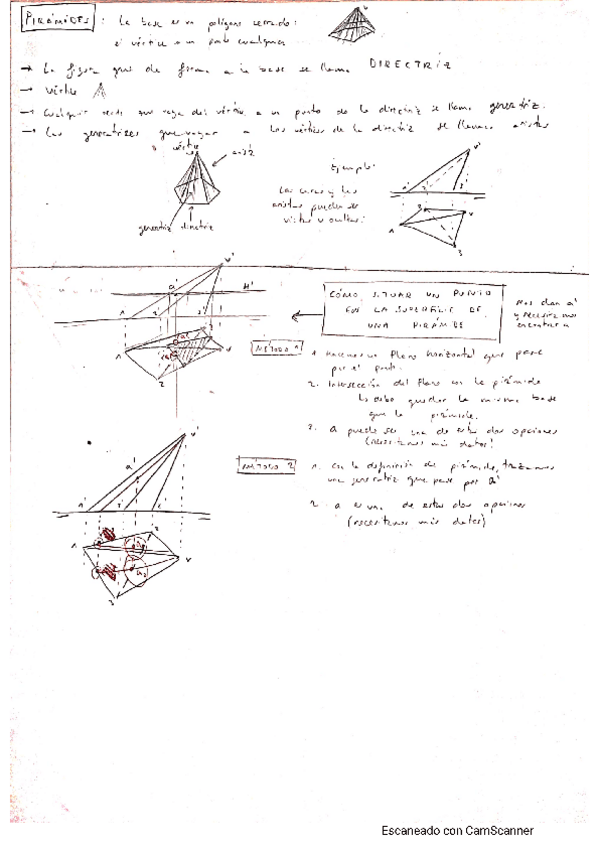 PIRÁMIDES : La base es un polígono cerrado:
el vértice a un punto cualquiera
→ La figura que da forma a la base se llama DIRECTRIZ
→ Vértice
→ Cualquier recta que vaya del vértice a un punto de la directriz se llama generatriz.
→ Las generatrices que vayan a los vértices de la directriz se llaman aristas
vértice
generatriz directriz
Ejemplo:
Las caras y las
aristas pueden ser
vistas u ocultas:
CÓMO SITUAR UN PUNTO
EN LA SUPERFICIE DE
UNA PIRÁMIDE
Nos dan a'
y necesitamos
encontrar a
MÉTODO 1
1. Hacemos un Plano horizontal que pase
por el punto.
2. Intersección del Plano con la pirámide
La debo guardar la misma base
que la pirámide.
3. a puede ser una de estas dos opciones
(necesitamos más datos)
MÉTODO 2
1. Con la definición de pirámide, trazamos
una generatriz que pase por a'
2. a es una de estas dos opciones
(necesitamos más datos)
Escaneado con CamScanner